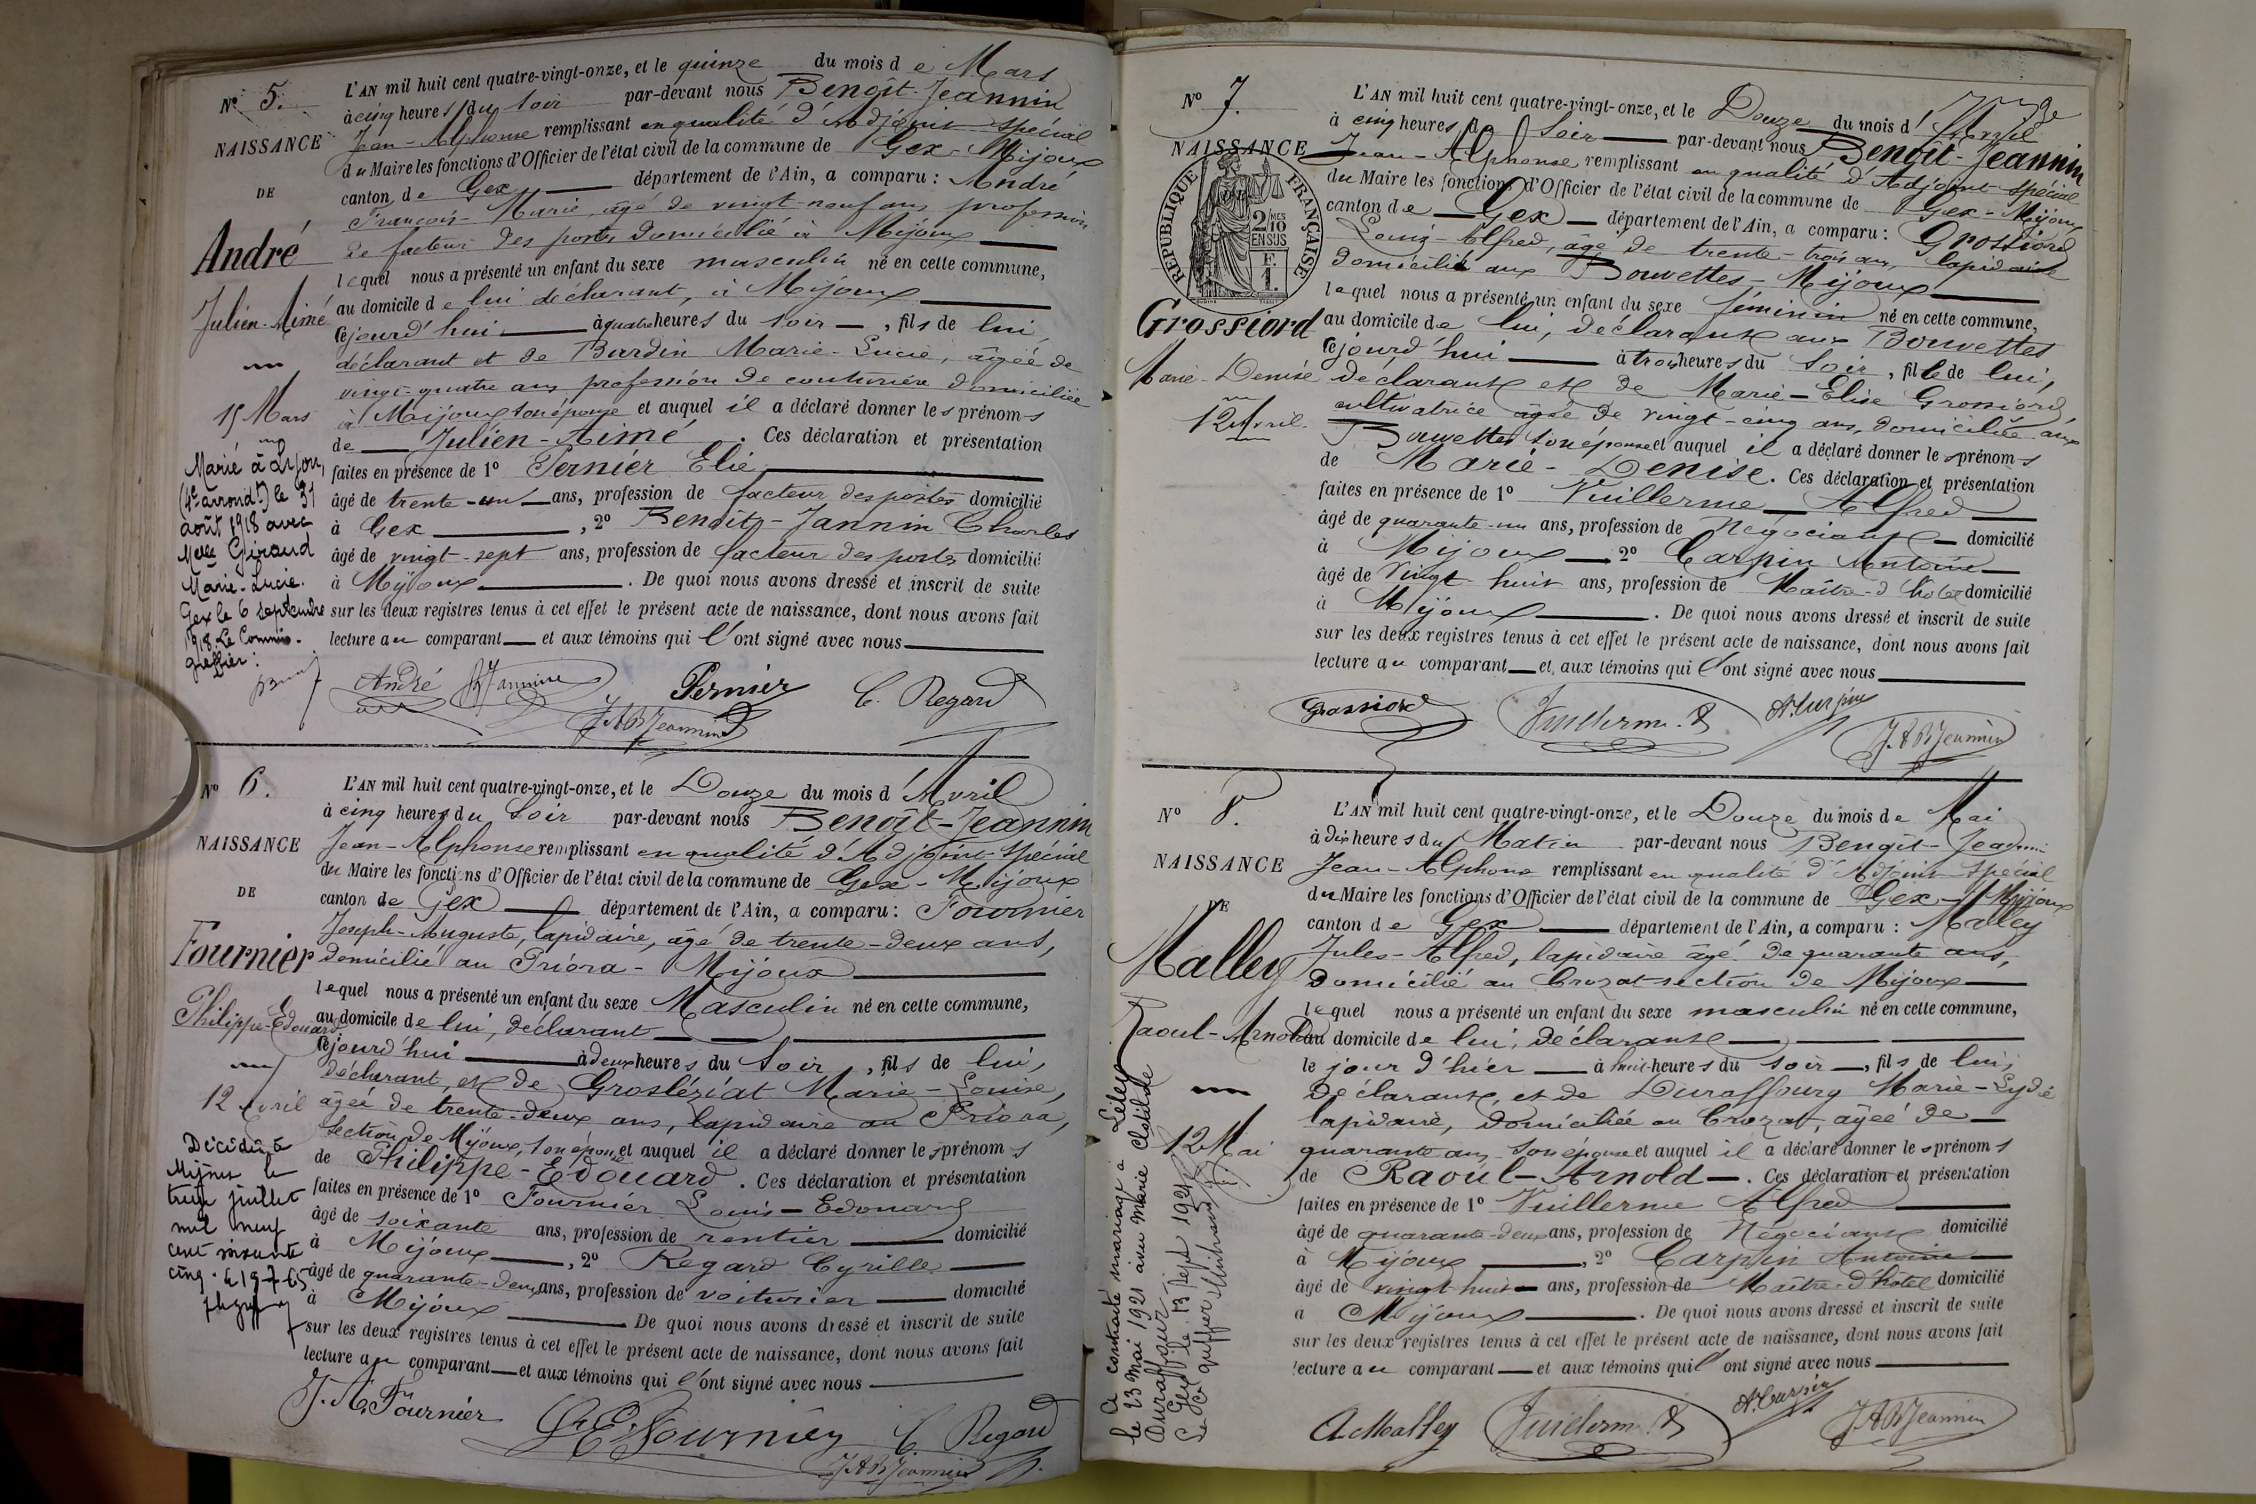 N° 5.
NAISSANCE
DE
André
Julien-Aimé
15 Mars
Marié à Lyon,
(4e arrond.t) le 31
août 1918 avec
Melle Giraud
Marie-Lucie.
Gex le 6 septembre
1918. Le Commis-
greffier :
L'AN mil huit cent quatre-vingt-onze, et le quinze du mois de Mars
à cinq heures du soir par-devant nous Benoît-Jeannin
Jean-Alphonse remplissant en qualité d'Adjoint spécial
du Maire les fonctions d'Officier de l'état civil de la commune de Gex-Mijoux
canton de Gex département de l'Ain, a comparu : André
François-Marie, âgé de vingt-neuf ans, profession
de facteur des postes domicilié à Mijoux
lequel nous a présenté un enfant du sexe masculin né en cette commune,
au domicile de lui déclarant, à Mijoux
cejourd'hui à quatre heures du soir, fils de lui
déclarant et de Bardin Marie-Lucie, âgée de
vingt-quatre ans, profession de couturière domiciliée
à Mijoux son épouse et auquel il a déclaré donner les prénoms
de Julien-Aimé. Ces déclaration et présentation
faites en présence de 1° Pernier Elie
âgé de trente-un ans, profession de facteur des postes domicilié
à Gex, 2° Benoit-Jannin Charles
âgé de vingt-sept ans, profession de facteur des postes domicilié
à Mijoux. De quoi nous avons dressé et inscrit de suite
sur les deux registres tenus à cet effet le présent acte de naissance, dont nous avons fait
lecture au comparant et aux témoins qui l'ont signé avec nous
André Pernier C. Regard
J A B Jeannin
N° 6.
NAISSANCE
DE
Fournier
Philippe-Edouard
12 avril
Décédé à
Mijoux le
treize juillet
mil neuf
cent soixante
cinq. Le 19-7-65
L'AN mil huit cent quatre-vingt-onze, et le Douze du mois d'Avril
à cinq heures du Soir par-devant nous Benoît-Jeannin
Jean-Alphonse remplissant en qualité d'Adjoint-spécial
du Maire les fonctions d'Officier de l'état civil de la commune de Gex-Mijoux
canton de Gex département de l'Ain, a comparu : Fournier
Joseph-Auguste, lapidaire, âgé de trente-deux ans,
domicilié au Priora-Mijoux
lequel nous a présenté un enfant du sexe Masculin né en cette commune,
au domicile de lui, déclarant
cejourd'hui à deux heures du soir, fils de lui,
déclarant, et de Grosléziat Marie-Louise,
âgée de trente-deux ans, lapidaire au Priora,
section de Mijoux, son épouse et auquel il a déclaré donner les prénoms
de Philippe-Edouard. Ces déclaration et présentation
faites en présence de 1° Fournier Louis-Edouard
âgé de soixante ans, profession de rentier domicilié
à Mijoux, 2° Regard Cyrille
âgé de quarante-deux ans, profession de voiturier domicilié
à Mijoux De quoi nous avons dressé et inscrit de suite
sur les deux registres tenus à cet effet le présent acte de naissance, dont nous avons fait
lecture au comparant et aux témoins qui l'ont signé avec nous
J. A. Fournier L E Fournier C. Regard
J A B Jeannin
N° 7.
NAISSANCE
RÉPUBLIQUE FRANÇAISE
2/10 MES
EN SUS
F.
1.
Grossiord
Marie-Denise
12 Avril.
L'AN mil huit cent quatre-vingt-onze, et le Douze du mois d'Avril
à cinq heures du Soir par-devant nous Benoît-Jeannin
Jean-Alphonse remplissant en qualité d'Adjoint-spécial
du Maire les fonctions d'Officier de l'état civil de la commune de Gex-Mijoux
canton de Gex département de l'Ain, a comparu : Grossiord
Louis-Alfred, âgé de trente-trois ans, lapidaire
domicilié aux Bouvettes-Mijoux
lequel nous a présenté un enfant du sexe féminin né en cette commune,
au domicile de lui, déclarant aux Bouvettes
cejourd'hui à trois heures du soir, fille de lui,
déclarant et de Marie-Elise Grossiord,
cultivatrice âgée de vingt-cinq ans, domiciliée aux
Bouvettes son épouse et auquel il a déclaré donner les prénoms
de Marie-Denise. Ces déclaration et présentation
faites en présence de 1° Vuillerme Alfred
âgé de quarante-un ans, profession de Négociant domicilié
à Mijoux 2° Carpin Antoine
âgé de Vingt-huit ans, profession de Maître-d'hôtel domicilié
à Mijoux. De quoi nous avons dressé et inscrit de suite
sur les deux registres tenus à cet effet le présent acte de naissance, dont nous avons fait
lecture au comparant et aux témoins qui l'ont signé avec nous
Grossiord Vuillerme. A A. Carpin
J. A B Jeannin
N° 8.
NAISSANCE
DE
Malley
Raoul-Arnold
12 Mai
A contracté mariage à Lélex
le 23 mai 1921 avec Marie Clotilde
Duraffourg
Gex le 13 Sept 1921
Le Cis greffier
L'AN mil huit cent quatre-vingt-onze, et le Douze du mois de Mai
à dix heures du Matin par-devant nous Bengît-Jeannin
Jean-Alphonse remplissant en qualité d'Adjoint-spécial
du Maire les fonctions d'Officier de l'état civil de la commune de Gex-Mijoux
canton de Gex département de l'Ain, a comparu : Malley
Jules-Alfred, lapidaire âgé de quarante ans,
domicilié au Crozat-section de Mijoux
lequel nous a présenté un enfant du sexe masculin né en cette commune,
au domicile de lui, déclarant
le jour d'hier à huit heures du soir, fils de lui,
déclarant, et de Duraffourg Marie-Lydie
lapidaire, domiciliée au Crozat, âgée de
quarante ans, son épouse et auquel il a déclaré donner les prénoms
de Raoul-Arnold. Ces déclaration et présentation
faites en présence de 1° Vuillerme Alfred
âgé de quarante-deux ans, profession de Négociant domicilié
à Mijoux, 2° Carpin Antoine
âgé de vingt-huit ans, profession de Maître-d'hôtel domicilié
à Mijoux. De quoi nous avons dressé et inscrit de suite
sur les deux registres tenus à cet effet le présent acte de naissance, dont nous avons fait
lecture au comparant et aux témoins qui l'ont signé avec nous
A Malley Vuillerme. A A. Carpin
J A B Jeannin